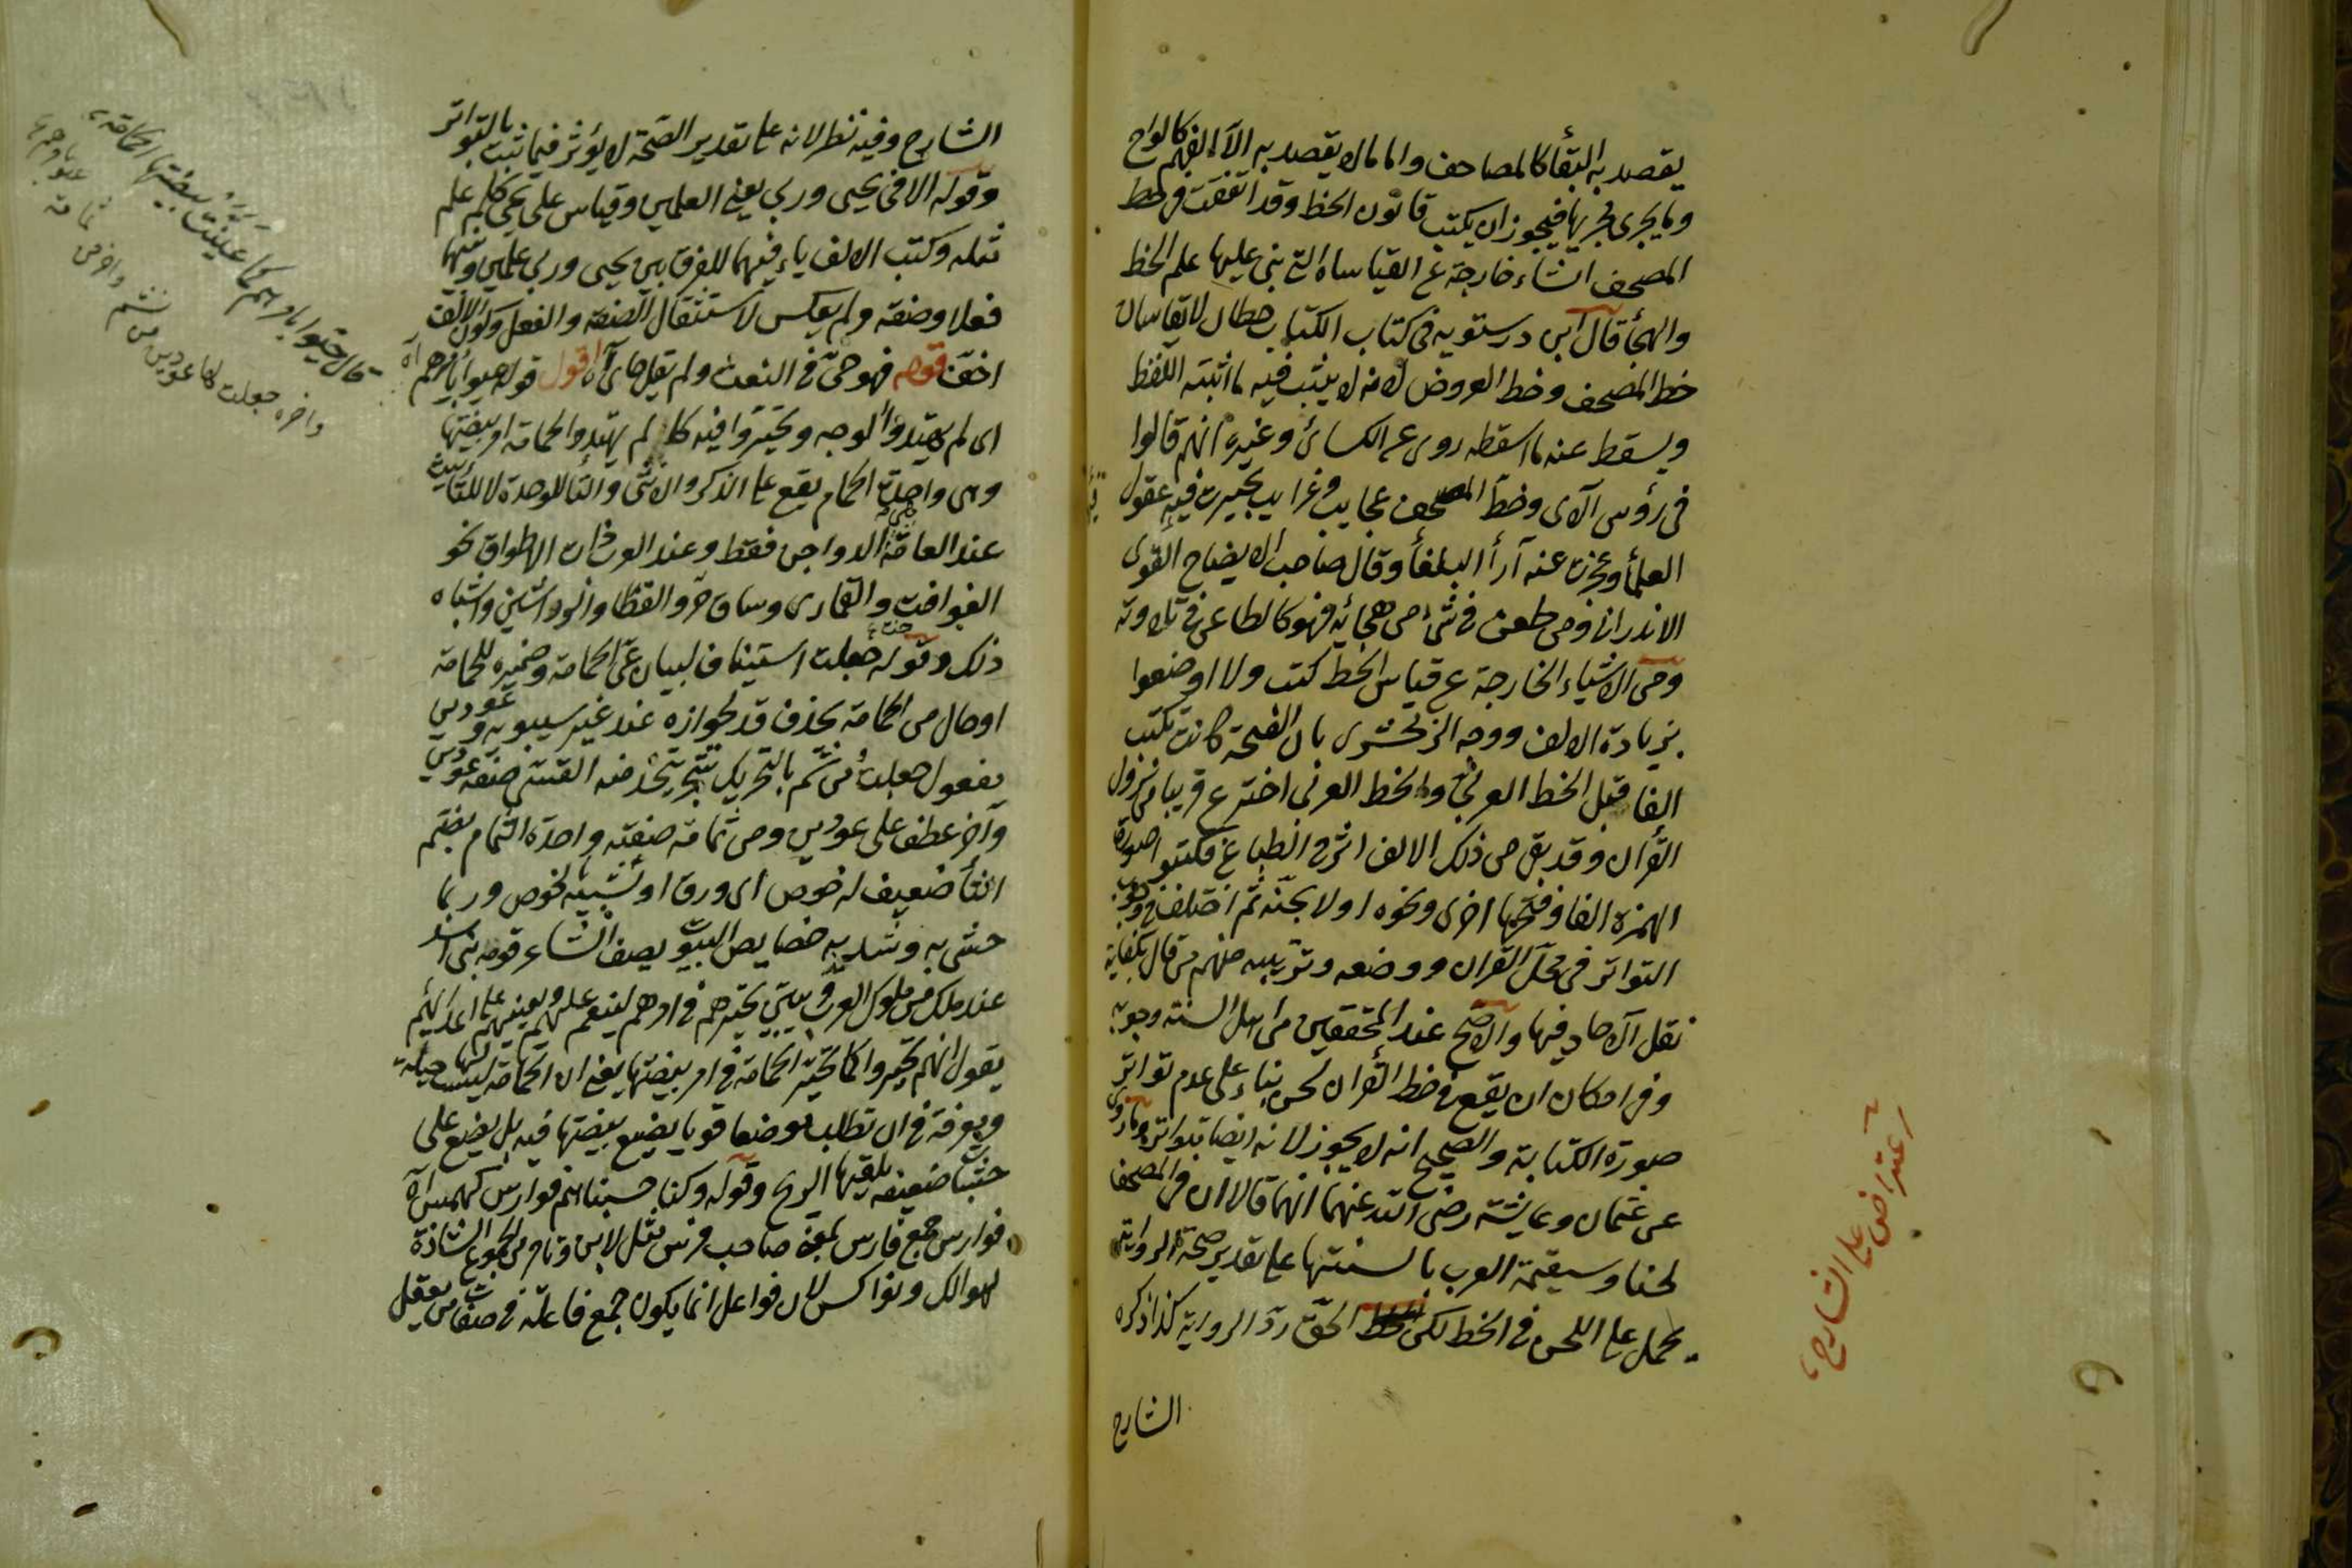 يقصد به البقأ كالمصاحف واما ما لا يقصد به الا الفهم كالواح
وما يجرى مجريها فيجوز ان يكتب قانون الخط وقد اتفقت فى خط
المصحف اشياء خارجة عن القياساة التى بنى عليها علم الخط
والهجأ قال ابن درستويه فى كتاب الكتاب خطان لا يقاسان
خط المصحف وخط العروض لانه لا يثبت فيه ما اثبته اللفظ
ويسقط عنه ما اسقطه روى عن الكسائى وغيره انهم قالوا
فى رؤس الآى وخط المصحف عجايب وغرايب تحيرت فيه عقول
العلمأ وعجزت عنه آرأ البلغأ وقال صاحب الايضاح القوى
الاندرابى ومن طعن فى شئ من هجائه فهو كالطاعن فى تلاوته
ومن الاشياء الخارجة عن قياس الخط كتب ولا اوضعوا
بزيادة الالف ووجه الزمخشرى بان الفتحة كانت تكتب
الفا قبل الخط العربى والخط العربى اخترع قريبا من نزول
القرأن وقد بقى من ذلك الالف اثر فى الطباع فكتبوا صورة
الهمزة الفا وفتحها اخرى ونحوه او لاذبحنه ثم اختلف فى وجوب
التواتر فى محل القران ووضعه وترتيبه منهم من قال بكفاية
نقل الآحاد فيها والاصح عند المحققين من اهل السنة وجوبه
وفى امكان ان يقع فى خط القرأن لحن بناء على عدم تواتر
صورة الكتابة والصحيح انه لا يجوز لانه ايضا بتواتر وما روى
عن عثمان وعايشة رضى الله عنهما انهما قالا ان فى المصحف
لحنا وستقيمة العرب بالسنتها على تقدير صحة الرواية
يحمل على اللحن فى الخط لكن الحق رد الرواية كذا ذكره
الشارح
اعتراض على الشارح
الشارح وفيه نظر لانه على تقدير الصحة لا يؤثر فيما ثبت بالتواتر
وقوله الا فى يحيى وربى يعنى العلمين وقياس على يحيى كل علم
مثله وكتب الالف ياء فيهما للفرق بين يحيى وربى علمين وبينهما
فعلا وصفة ولم يعكس لاستثقال الصفة والفعل وكون الالف
اخف قوله فهو حى فى النعت ولم يقل حاى آه اقول قوله عيوا بامرهم آه
اى لم يهتدوا لوجه وتحيروا فيه كما لم يهتدوا الحمامة امر بيضتها
وهى واحدة الحمام يقع على الذكر والانثى والتأ للوحدة لا للتأنيث
عند العامة هى الدواجن فقط وعند العرب ذات الاطواق نحو
الفواخت والقمارى وساق حر والقطا والوراشين واشباه
ذلك وقوله جعلت استيناف لبيان عى الحمامة وضميره للحمامة
او حال من الحمامة بحذف قد لجوازه عند غير سيبويه وعودين
مفعول جعلت من نشم بالتحريك شجر يتخذ منه القسى صفة عودين
وآخر عطف على عودين ومن ثمامة صفته واحدة الثمام بضم
الثأ ضعيف له خوص اى ورق او شبيه بالخوص وربما
حشى به وشد به خصايص البيوت يصف الشاعر قومه بنى اسد
عند ملك من ملوك العرب ويبين تحيرهم فى امرهم لينعم عليهم ويعينهم على اعدائهم
يقول انهم تحيروا كما تحير الحمامة فى امر بيضتها يعنى ان الحمامة ليست لها حيلة
ومعرفة فى ان تطلب موضعا قويا يضع بيضتها فيه بل يضع على
خشبات ضعيفه يلقيها الريح وقوله وكنا حسبناهم فوارس كهمس آه
فوارس جمع فارس بمعنى صاحب فرس مثل لابن وتامر من الجموع الشاذة
لهوالك ونواكس لان فواعل انما يكون جمع فاعلة فى صفات من يعقل
قال عيوا بامرهم كما عيت ببيضتها الحمامة
واخره جعلت لها عودين من نشم واخر من ثمامة